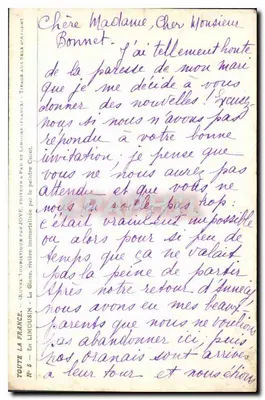 Chère Madame, Cher Monsieur
Bonnet.
J'ai tellement honte
de la paresse de mon mari
que je me décide à vous
donner des nouvelles! Excusez-
nous si nous n'avons pas
répondu à votre bonne
invitation; je pense que
vous ne nous aurez pas
attendu et que vous ne
nous en voulez pas trop:
c'était vraiment impossible
ou alors pour si peu de
temps que ça ne valait
pas la peine de partir
Après notre retour d'
nous avons eu mes beaux
parents que nous ne voulions
pas abandonner ici; puis
nos oranais sont arrivés
à leur tour et nous étions
TOUTE LA FRANCE.
No 5 - En LIMOUSIN - La Glane, rivière immortalisée par le peintre Corot.